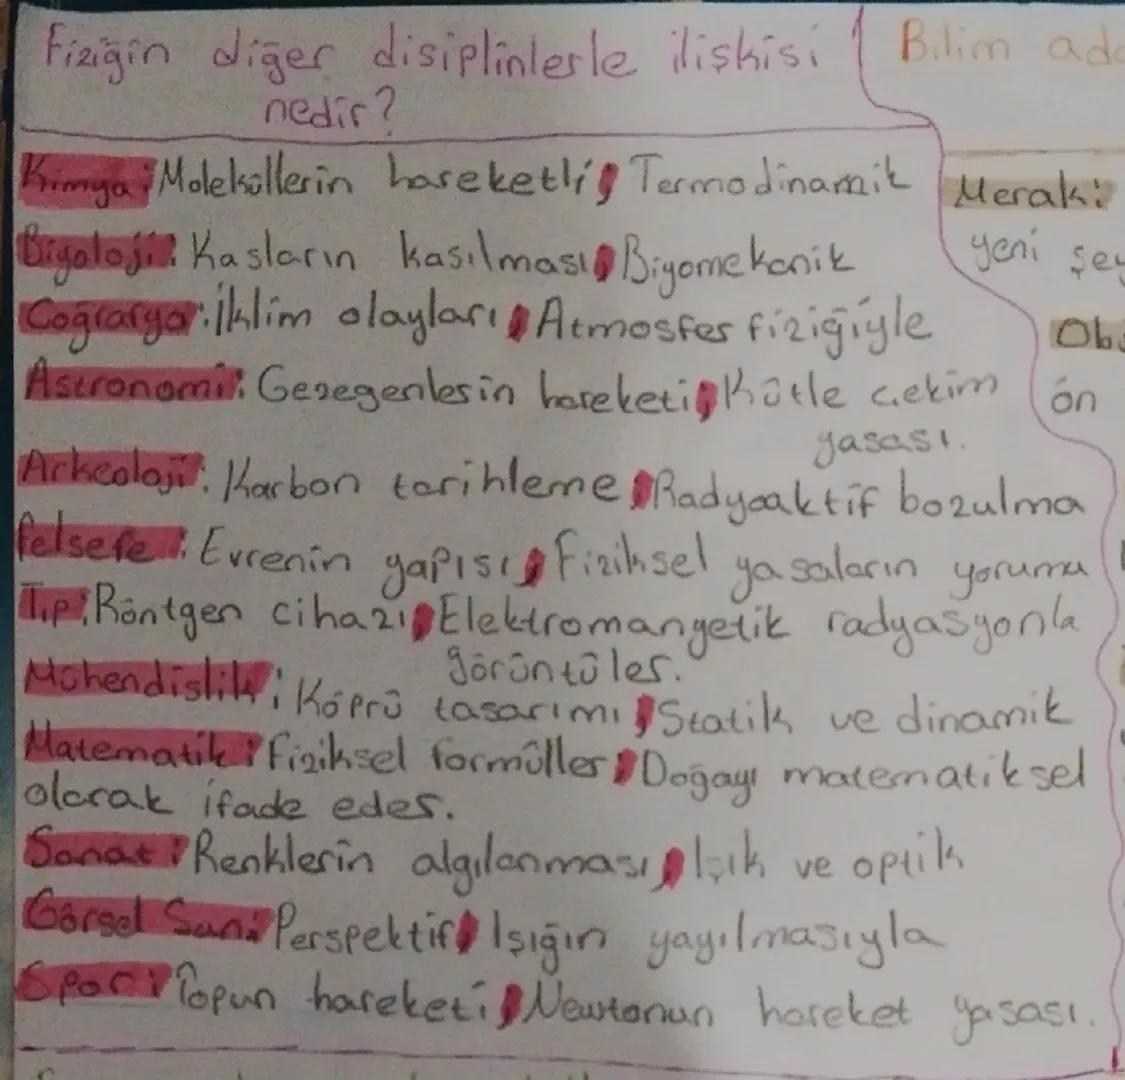 Fiziğin diğer disiplinlerle ilişkisi
nedir?
Kimya: Moleküllerin hareketli; Termodinamik
Biyoloji: Kasların kasılması; Biyomekanik
Coğrafya: İklim olayları; Atmosfer fiziğiyle
Astronomi: Gezegenlerin hareketi; Kütle çekim
yasası.
Arkeoloji: Karbon tarihleme; Radyoaktif bozulma
felsefe: Evrenin yapısı; Fiziksel yasaların yorumu
Tıp: Röntgen cihazı; Elektromanyetik radyasyonla
görüntüler.
Mühendislik; Köprü tasarımı; Statik ve dinamik
Matematik: Fiziksel formüller; Doğayı matematiksel
olarak ifade eder.
Sanat: Renklerin algılanması; Işık ve optik
Görsel San: Perspektif; Işığın yayılmasıyla
Spor: Topun hareketi; Newtonun hareket yasası.
Bilim
Merak:
yeni
ön